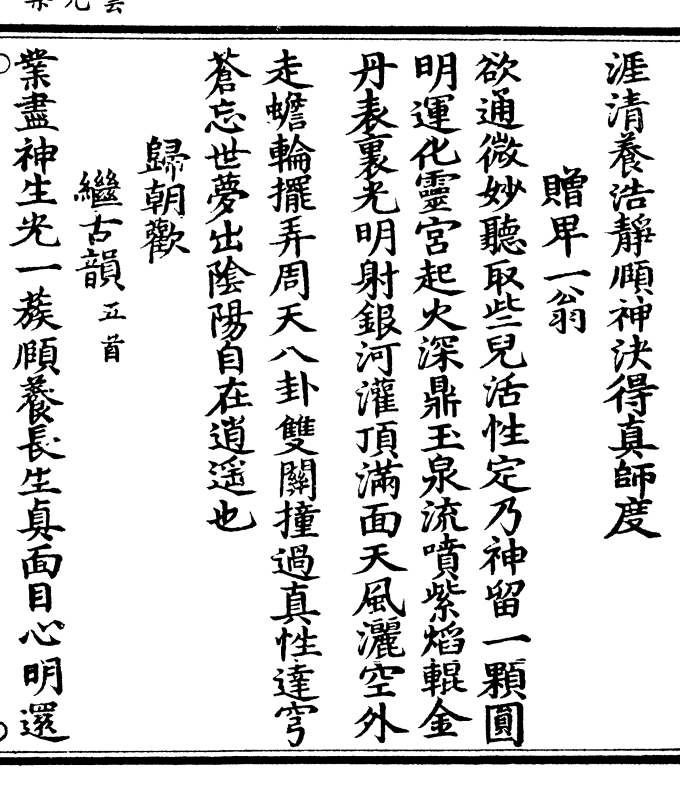 涯清養浩靜頤神決得真師度
贈卑一翁
欲通微妙聽取些兒活性定乃神留一顆圓
明運化靈宮起火深鼎玉泉流噴紫焰輥金
丹表裏光明射銀河灌頂滿面天風灑空外
走蟾輪擺弄周天八卦雙關撞過真性達穹
蒼忘世夢出陰陽自在逍遥也
歸朝歡
繼古韻五首
業盡神生光一蔟頤養長生真面目心明還